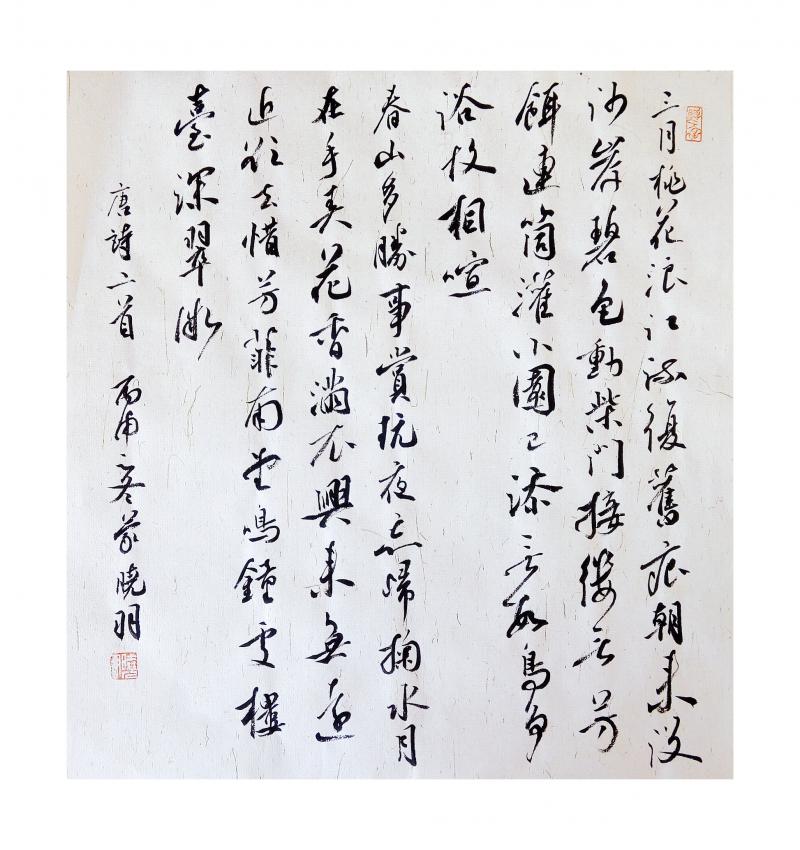 三月桃花浪江流復舊痕朝来没
沙岸碧色動柴門接縷垂芳
餌連筒灌小園已添無數鳥爭
浴故相喧
春山多勝事賞玩夜忘歸掬水月
在手弄花香滿衣興来無遠
近欲去惜芳菲南望鳴鐘處樓
臺深翠微
唐詩二首 丙申冬蒙曉明